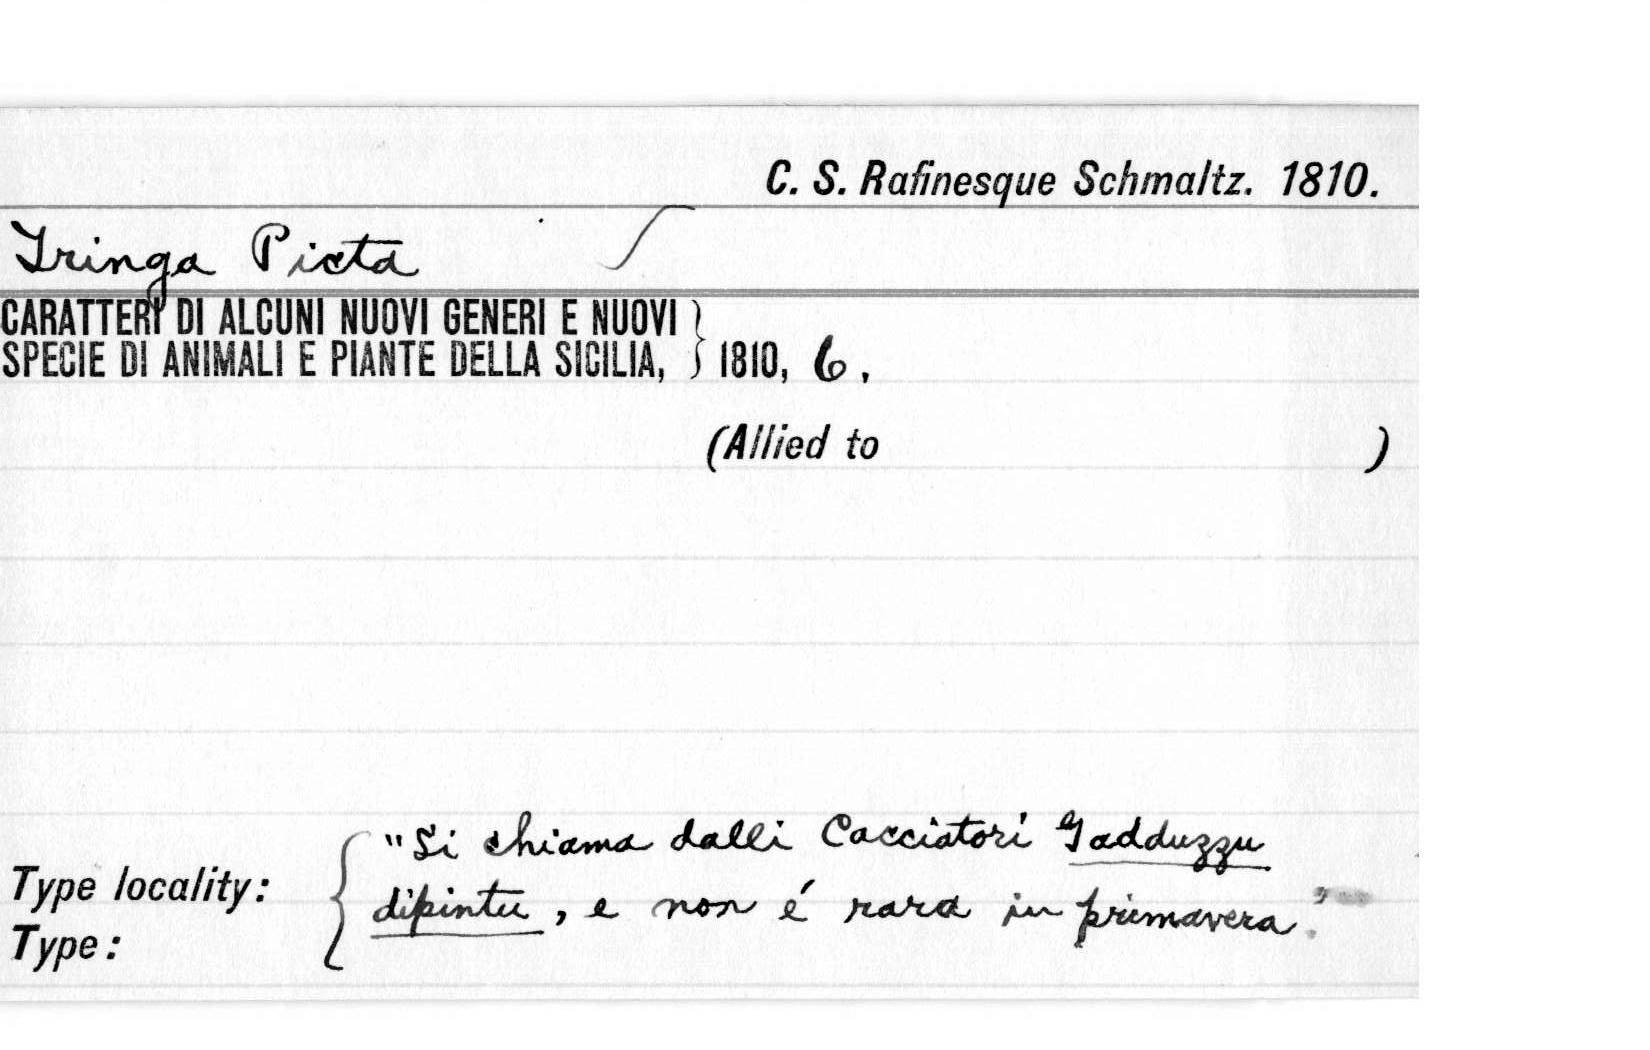 C. S. Rafinesque Schmaltz. 1810.
Tringa Picta
CARATTERI DI ALCUNI NUOVI GENERI E NUOVI
SPECIE DI ANIMALI E PIANTE DELLA SICILIA, } 1810, 6.
(Allied to )
"Si chiama dalli Cacciatori Gadduzzu
Type locality: dipintu, e non é rara in primavera."
Type: